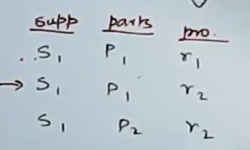 Supp parts pro.
S1 P1 r1
→ S1 P1 r2
S1 P2 r2